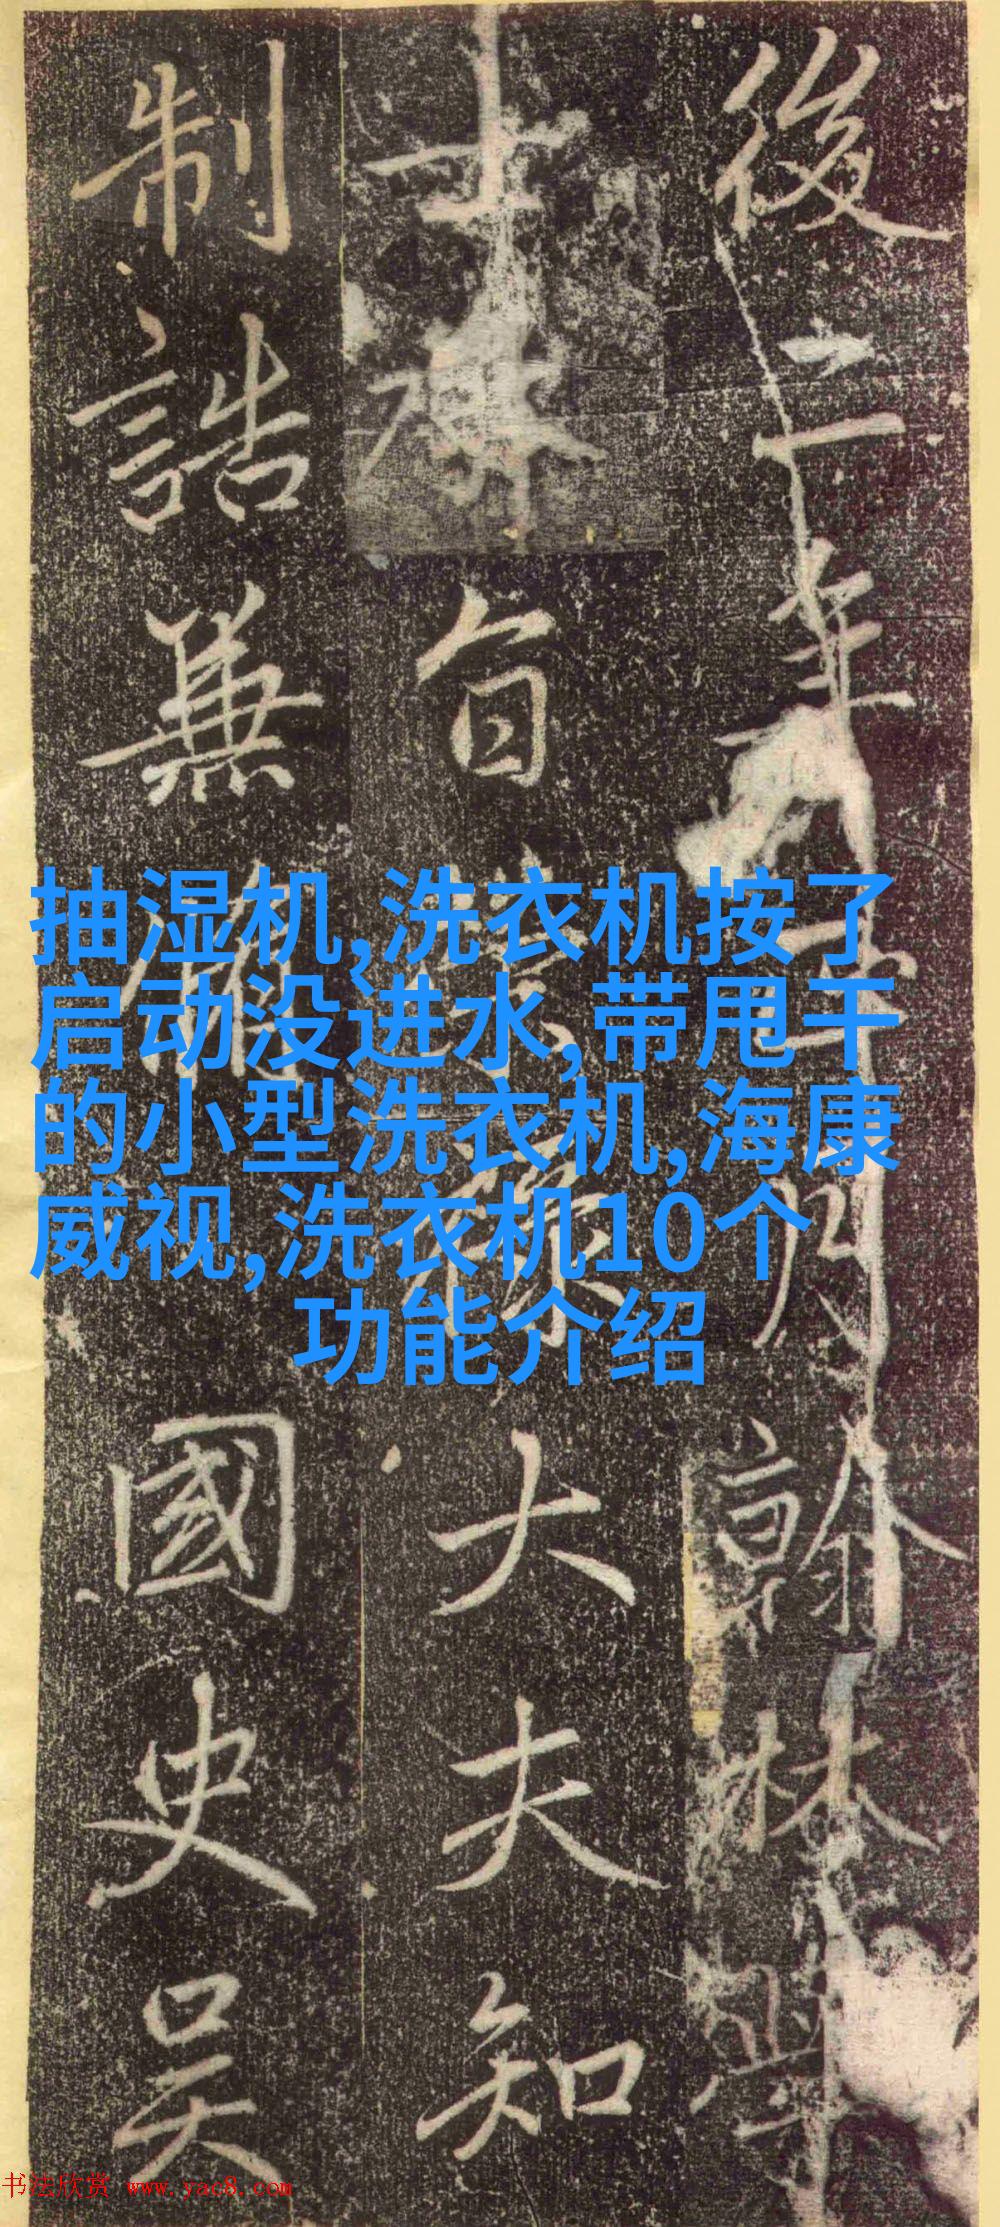 後二年
月翰林學
士
旨
大夫知
制誥兼
國史吴
抽湿机,洗衣机按了
启动没进水,带甩干
的小型洗衣机,海康
威视,洗衣机10个
功能介绍
书法欣赏 www.yac8.com